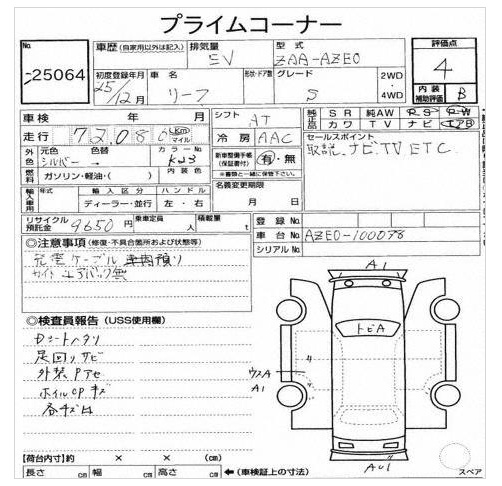 プライムコーナー
No.
25064
車歴 (自家用以外は記入)
排気量 EV
型式 ZAA-AZE0
初度登録年月 25/12月
車名 リーフ
形状・ドア数
グレード S
2WD
4WD
評価点 4
内装補助評価 B
車検 年 月
走行 72,086 km マイル
シフト AT
冷房 AAC
純正品 SR 純AW PS PW
カワ TV ナビ エアB
外色 元色 シルバー 色替 → カラーNo. K23
内装色
燃料 ガソリン・軽油・( )
新車整備手帳(保証書付) 有・無
※書類と一緒に保管して下さい。
セールスポイント
取説 ナビTV ETC
輸入車用 年式 輸入区分 ハンドル
ディーラー・並行 左・右
名義変更期限
月 日
リサイクル預託金 9650円
乗車定員 人
積載量 t
登録No.
車台No. AZE0-100078
シリアルNo.
◎注意事項 (修復・不具合箇所および状態等)
充電ケーブル 車内預り
サイドエアバック無
◎検査員報告 (USS使用欄)
Dシートヘタリ
足回りサビ
外装Pアセ
ホイルCPキズ
A1
トビA
ウスA
A1
スペア
【荷台内寸】約 × × (cm)
長さ cm 幅 cm 高さ cm ←(車検証上の寸法)